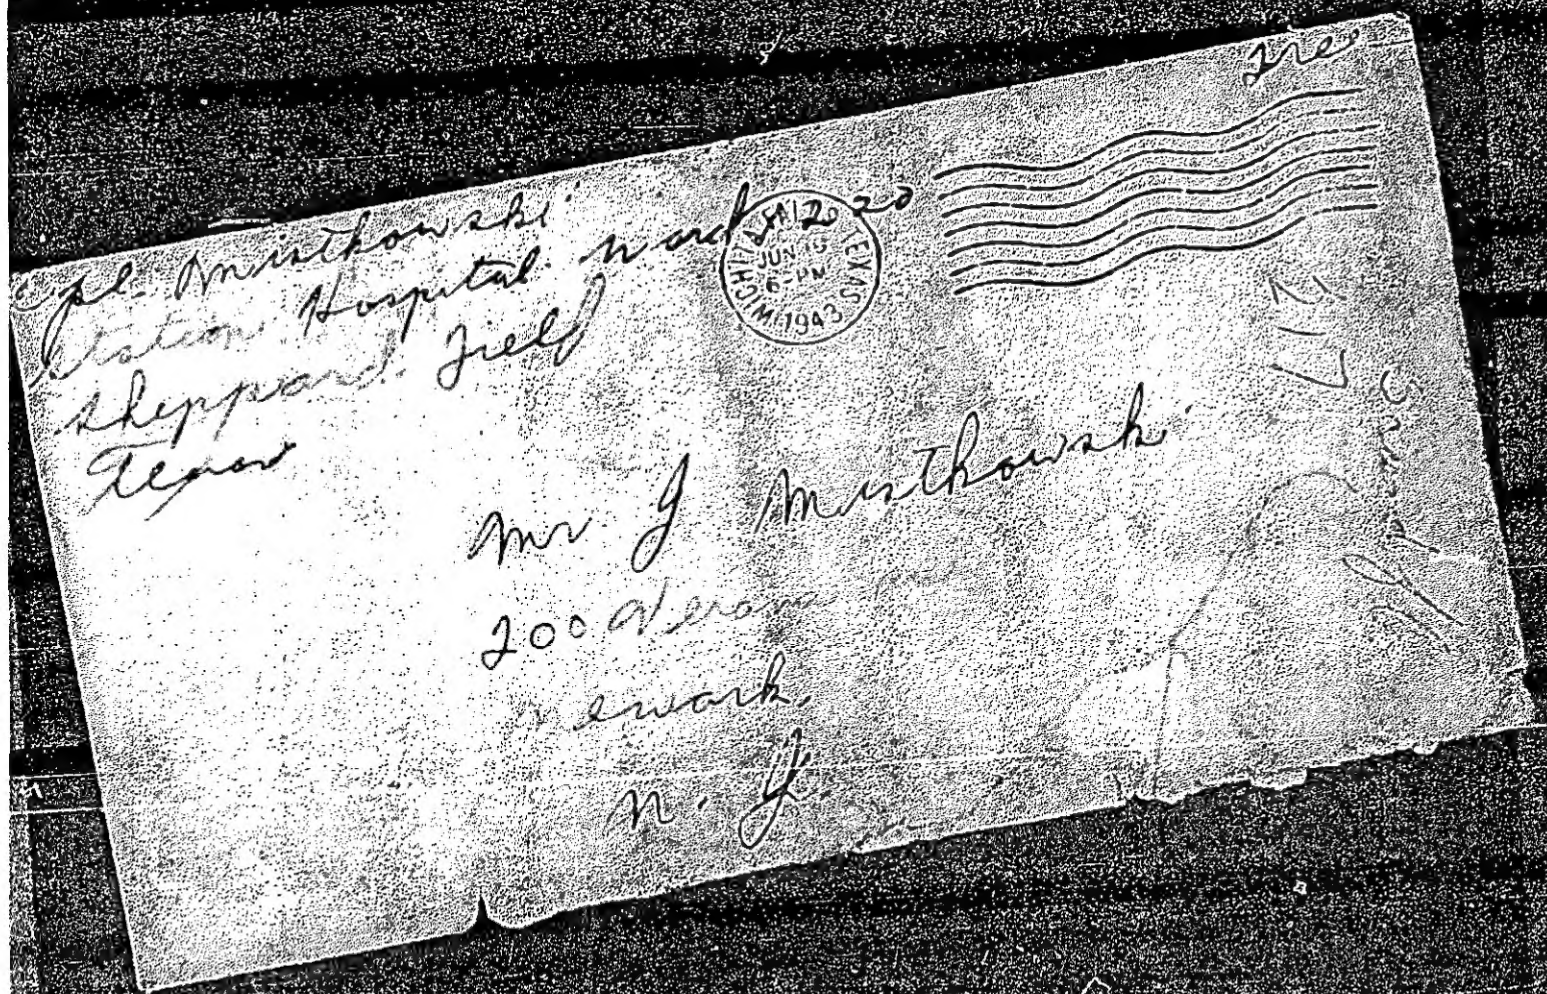 Cpl. Mistkowski
Station Hospital Ward
Sheppard Field
Texas
WICHITA FALLS TEXAS
JUN 15
6-PM
1943
Free
Mr J Mistkowski
200 Verona
Newark.
N. J.